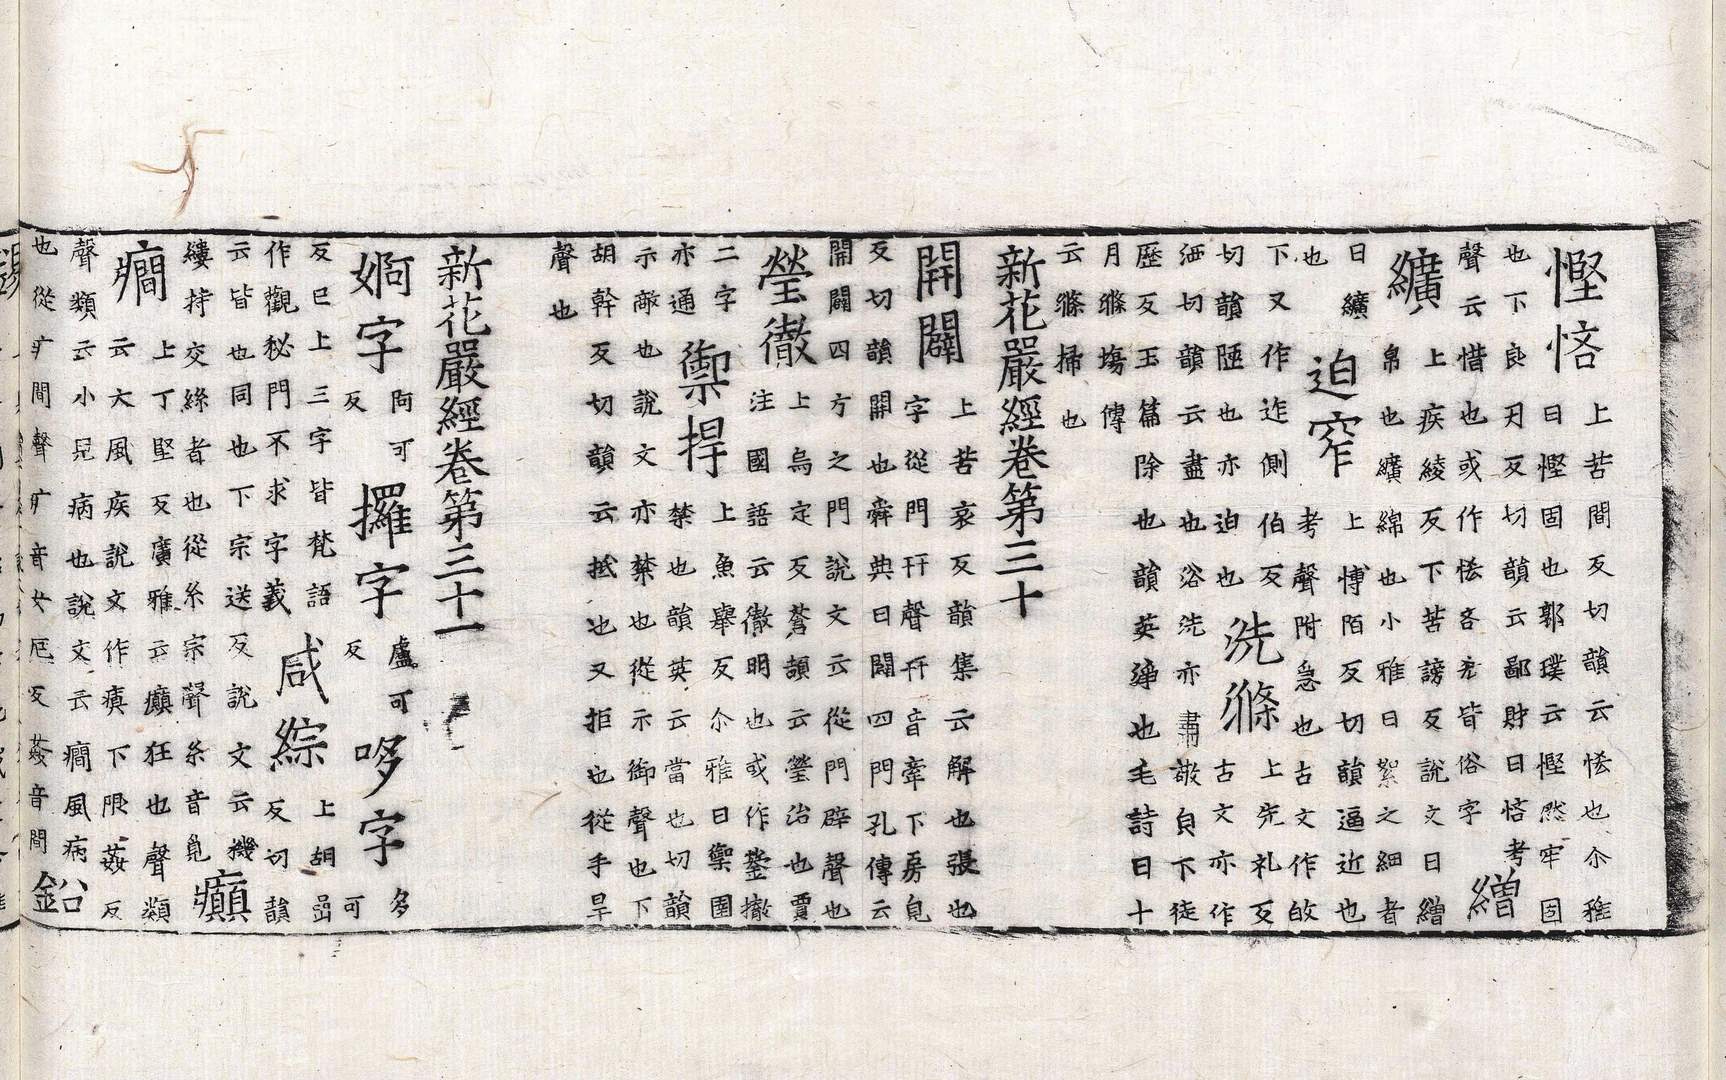 慳悋
上苦間反切韻云恡也尒雅
曰慳固也郭璞云慳㦙牢固
也下良刃反切韻云鄙財曰悋考
聲云惜也或作恡吝㐫皆俗字
繒
纊
上疾綾反下苦謗反說文曰繒
帛也纊綿也小雅曰絮之細者
曰纊
也
迫窄
上博陌反切韻逼近也
考聲附急也古文作敀
下又作迮側伯反
切韻陋也亦迫也
洗滌
上先礼反
古文亦作
洒切韻云盡也浴洗亦肅敬皃下徒
歷反玉篇除也韻英浄也毛詩曰十
月滌場傳
云滌掃也
新花嚴經卷第三十
開闢
上苦哀反韻集云解也張也
字從門幵聲幵音牽下房
反切韻開也舜典曰闢四門孔傳云
開闢四方之門說文云從門辟聲也
瑩徹
上烏定反蒼頡云瑩治也賈
注國語云徹明也或作鎣撤
二字
亦通
禦捍
上魚舉反尒雅曰禦圉
禁也韻英云當也切韻
示敵也說文亦禁也從示御聲也下
胡幹反切韻云也又拒也從手旱
聲
也
新花嚴經卷第三十一
婀字
阿可
反
攞字
盧可
反
哆字
多
可
反已上三字皆梵語
作觀秘門不求字義
咸綜
上胡喦
反切韻
云皆也同也下宗送反說文云機
縷持交絲者也從糸宗聲糸音覓
癲
癇
上丁堅反廣雅云癲狂也聲類
云大風疾說文作瘨下限姦反
聲類云小兒病也說文云癇風病
也從疒間聲疒音女厄反姦音間
鉛